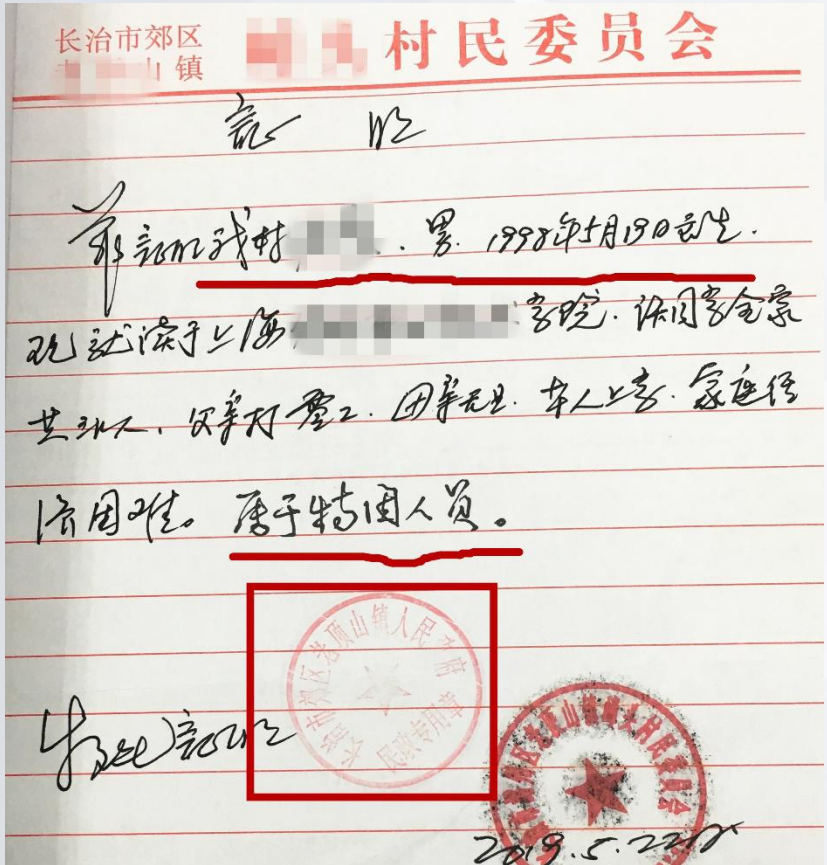 长治市郊区
山镇
村民委员会
证 明
兹证明我村 、男、1998年5月19日出生.
现就读于上海 学院.该同学全家
共三人,父亲打零工.母亲无业.本人上学.家庭经
济困难。属于特困人员。
特此证明
长治市郊区老顶山镇人民政府
民政专用章
郊区老顶山镇 村民委员会
2019.5.22